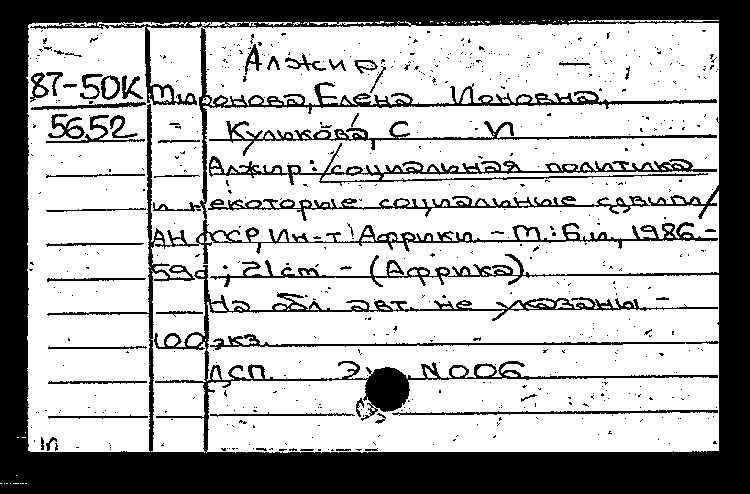 Алжир;
87-50К Миронова, Елена Ионовна,
5652 - Кулькова, С И
Алжир: социальная политика
и некоторые социальные сдвиги/
АН СССР, Ин-т Африки. - М.: Б.и., 1986.-
59с.; 21 cm. - (Африка).
На обл. авт. не указаны. -
100 экз.
ЛСП. N006